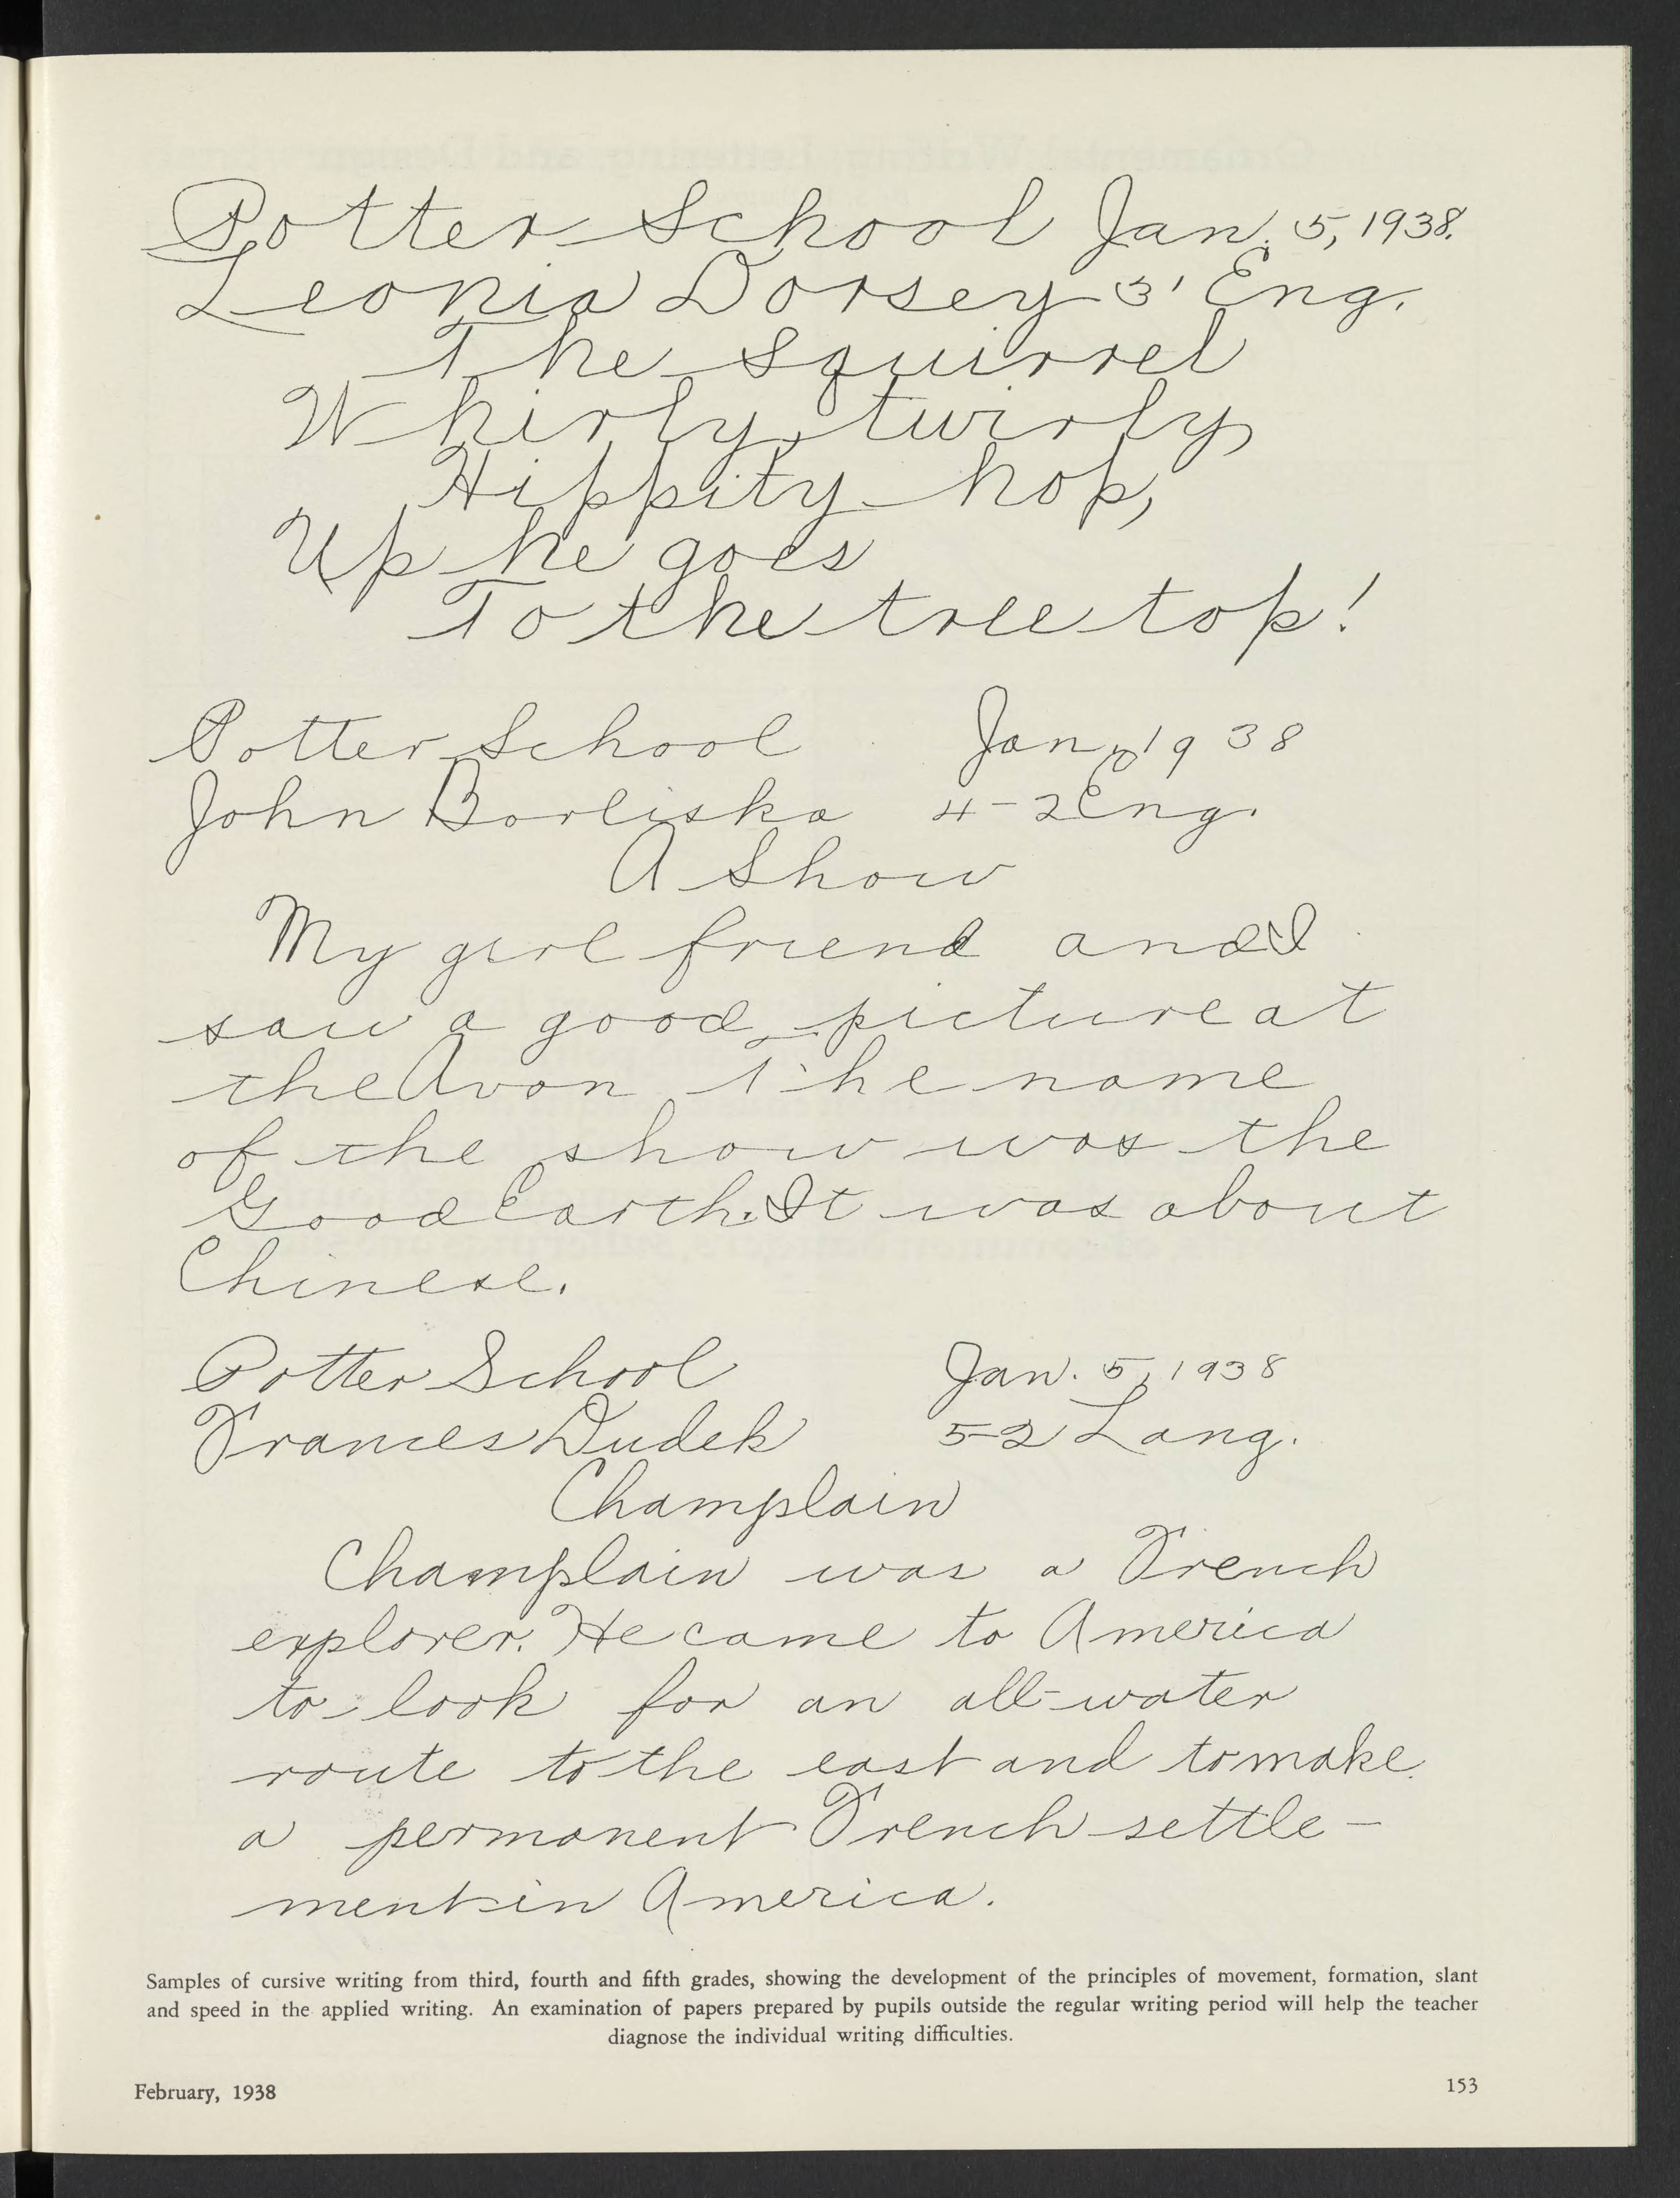 Potter School Jan. 5, 1938.
Leonia Dorsey 3' Eng.
The Squirrel
Whirly, twirly
Hippity hop,
Up he goes
To the tree top!
Potter School Jan, 1938
John Borliska 4-2 Eng.
A Show
My girl friend and I
saw a good picture at
the Avon The name
of the show was the
Good Earth. It was about
Chinese.
Potter School Jan. 5, 1938
Frances Dudek 5-2 Lang.
Champlain
Champlain was a French
explorer. He came to America
to look for an all-water
route to the east and to make
a permanent French settle-
ment in America.
Samples of cursive writing from third, fourth and fifth grades, showing the development of the principles of movement, formation, slant
and speed in the applied writing. An examination of papers prepared by pupils outside the regular writing period will help the teacher
diagnose the individual writing difficulties.
February, 1938 153